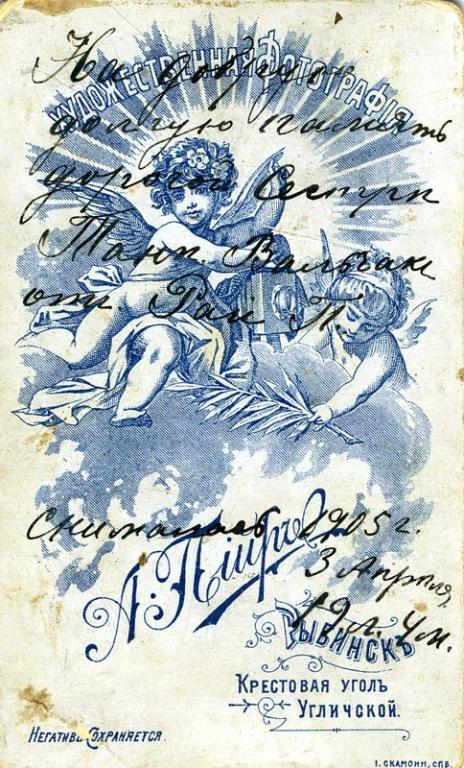 ХУДОЖЕСТВЕННАЯ ФОТОГРАФІЯ
На добрую
долгую память
дорогой Сестрѣ
Тани
от. Раи П.
Снималась 1905 г.
3 Апреля,
19 л. 4 м.
А. Пішръ
РЫБИНСКЪ
КРЕСТОВАЯ УГОЛЪ
УГЛИЧСКОЙ.
НЕГАТИВЪ СОХРАНЯЕТСЯ.
І. СКАМОНИ, СПБ.